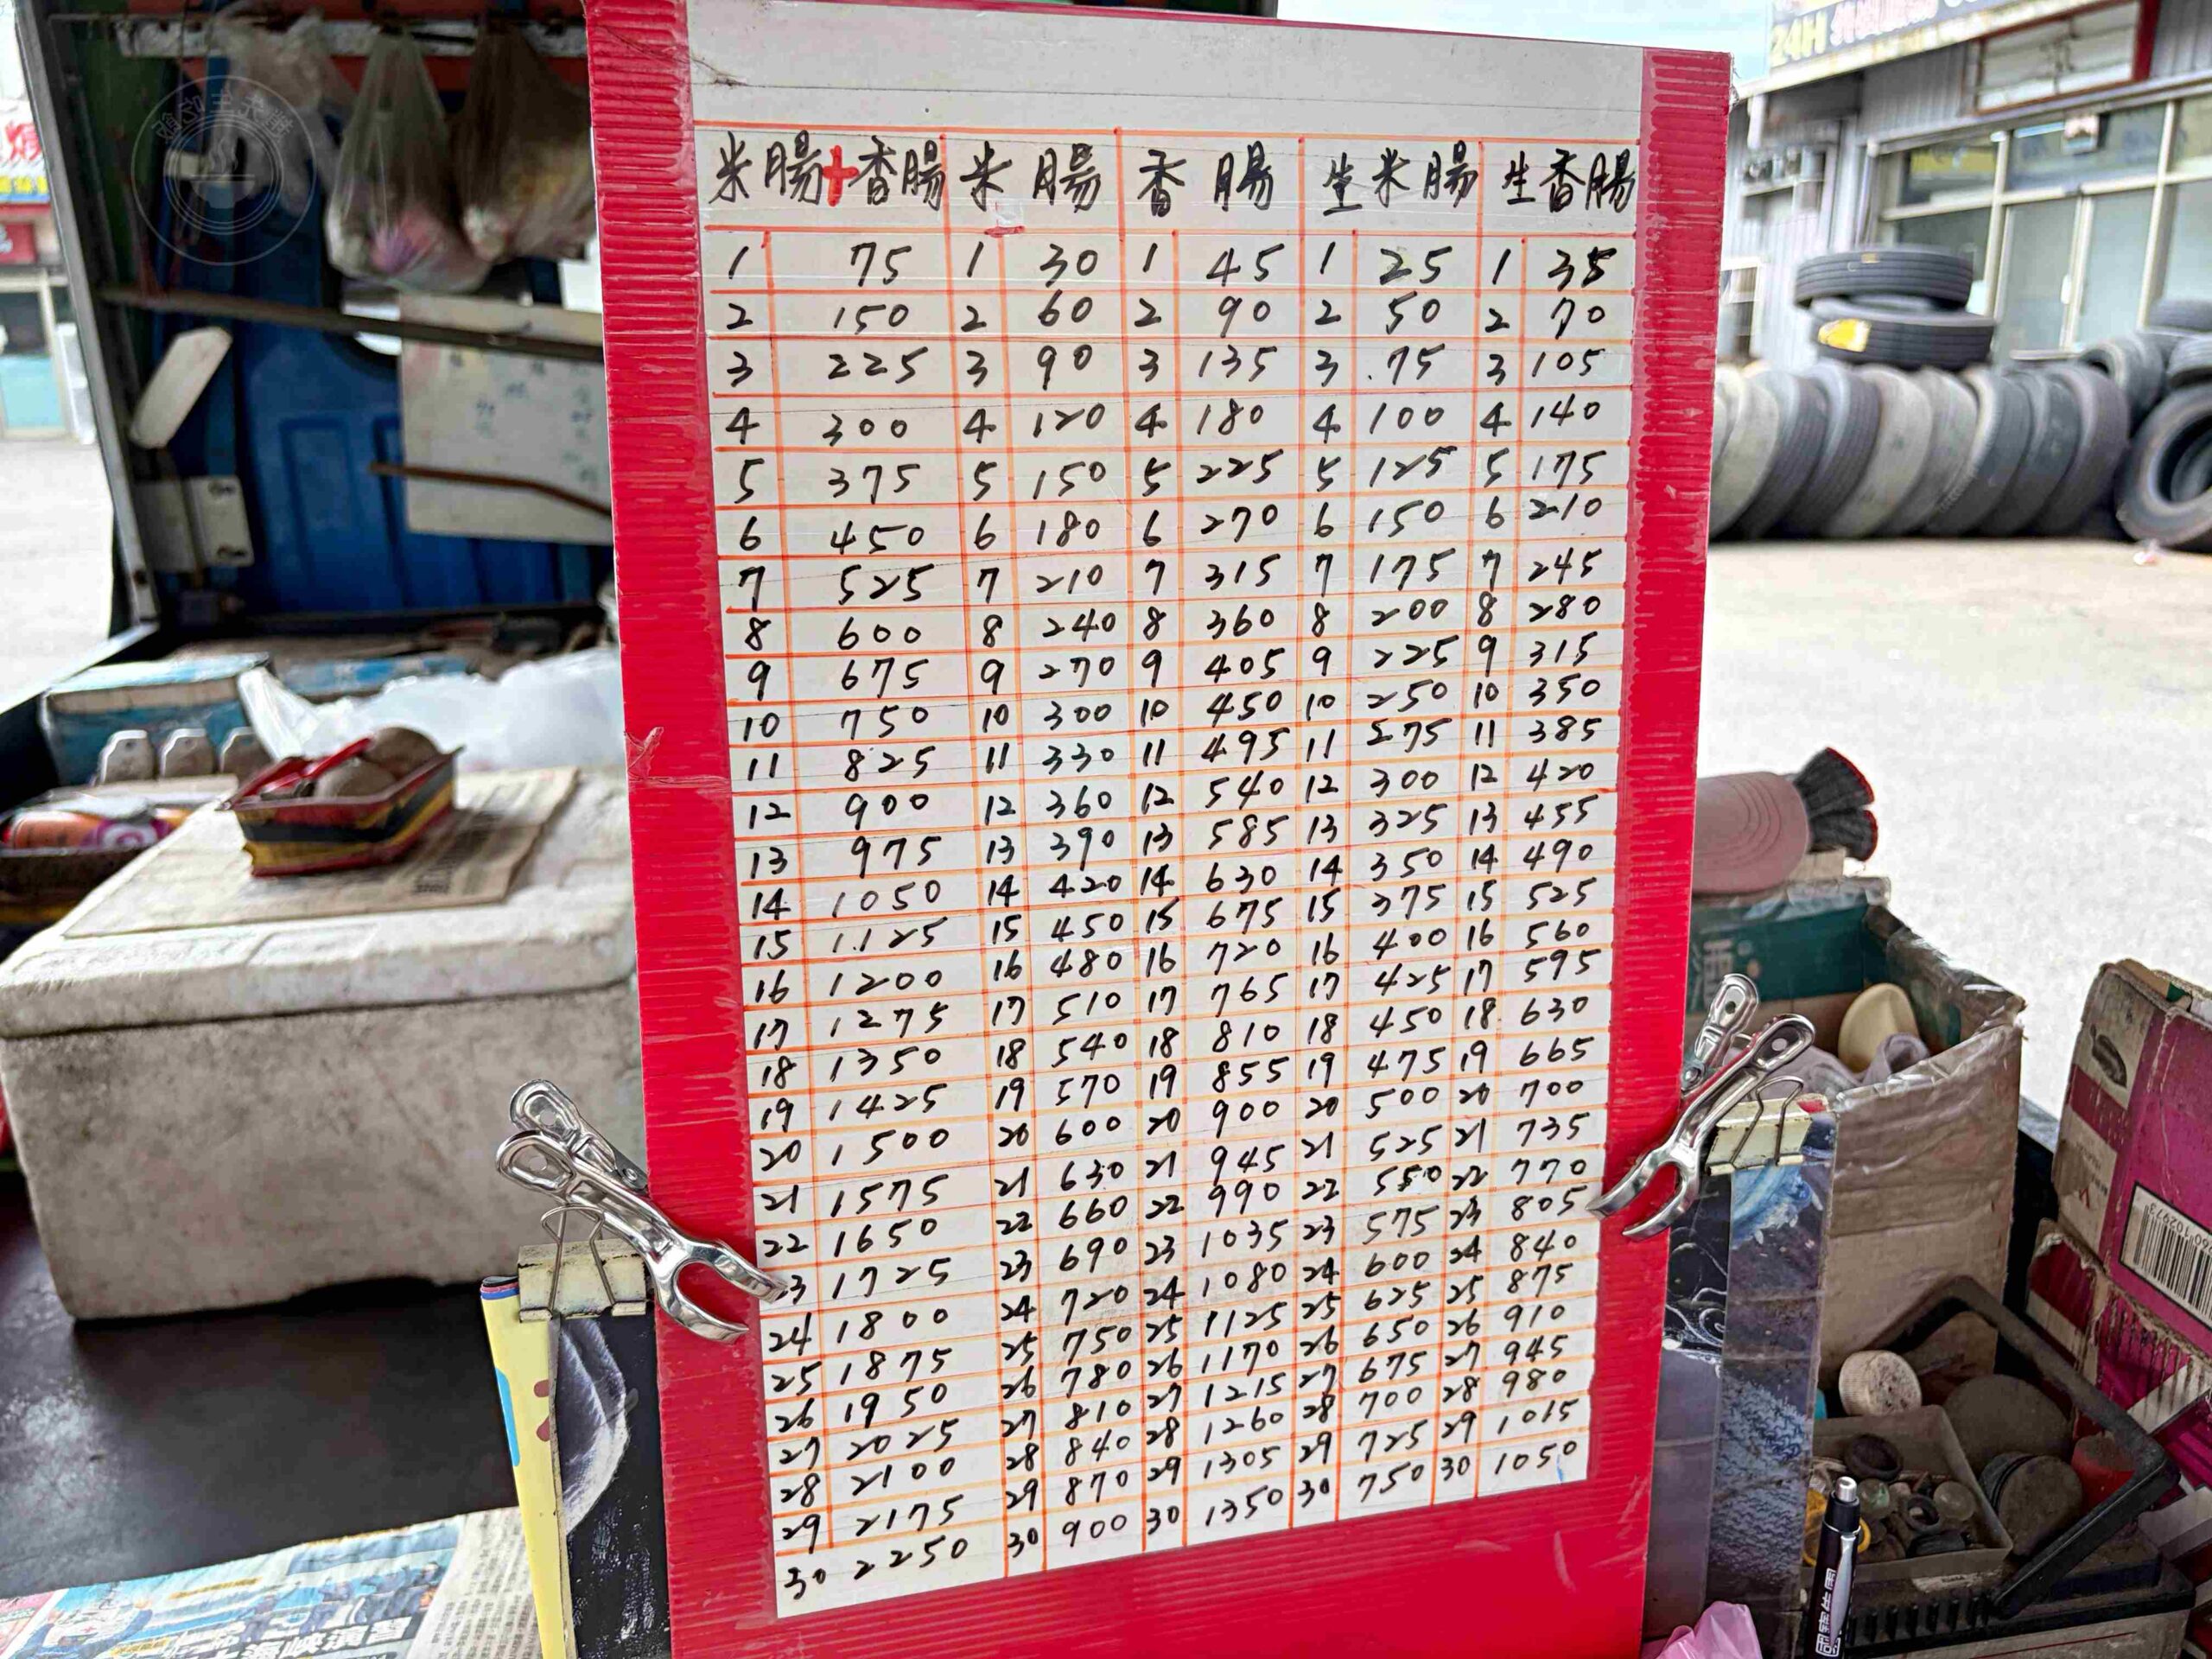 24H
米腸+香腸 米腸 香腸 生米腸 生香腸
1 75 1 30 1 45 1 25 1 35
2 150 2 60 2 90 2 50 2 70
3 225 3 90 3 135 3 75 3 105
4 300 4 120 4 180 4 100 4 140
5 375 5 150 5 225 5 125 5 175
6 450 6 180 6 270 6 150 6 210
7 525 7 210 7 315 7 175 7 245
8 600 8 240 8 360 8 200 8 280
9 675 9 270 9 405 9 225 9 315
10 750 10 300 10 450 10 250 10 350
11 825 11 330 11 495 11 275 11 385
12 900 12 360 12 540 12 300 12 420
13 975 13 390 13 585 13 325 13 455
14 1050 14 420 14 630 14 350 14 490
15 1125 15 450 15 675 15 375 15 525
16 1200 16 480 16 720 16 400 16 560
17 1275 17 510 17 765 17 425 17 595
18 1350 18 540 18 810 18 450 18 630
19 1425 19 570 19 855 19 475 19 665
20 1500 20 600 20 900 20 500 20 700
21 1575 21 630 21 945 21 525 21 735
22 1650 22 660 22 990 22 550 22 770
3 1725 23 690 23 1035 23 575 23 805
24 1800 24 720 24 1080 24 600 24 840
25 1875 25 750 25 1125 25 625 25 875
26 1950 26 780 26 1170 26 650 26 910
27 2025 27 810 27 1215 27 675 27 945
28 2100 28 840 28 1260 28 700 28 980
29 2175 29 870 29 1305 29 725 29 1015
30 2250 30 900 30 1350 30 750 30 1050